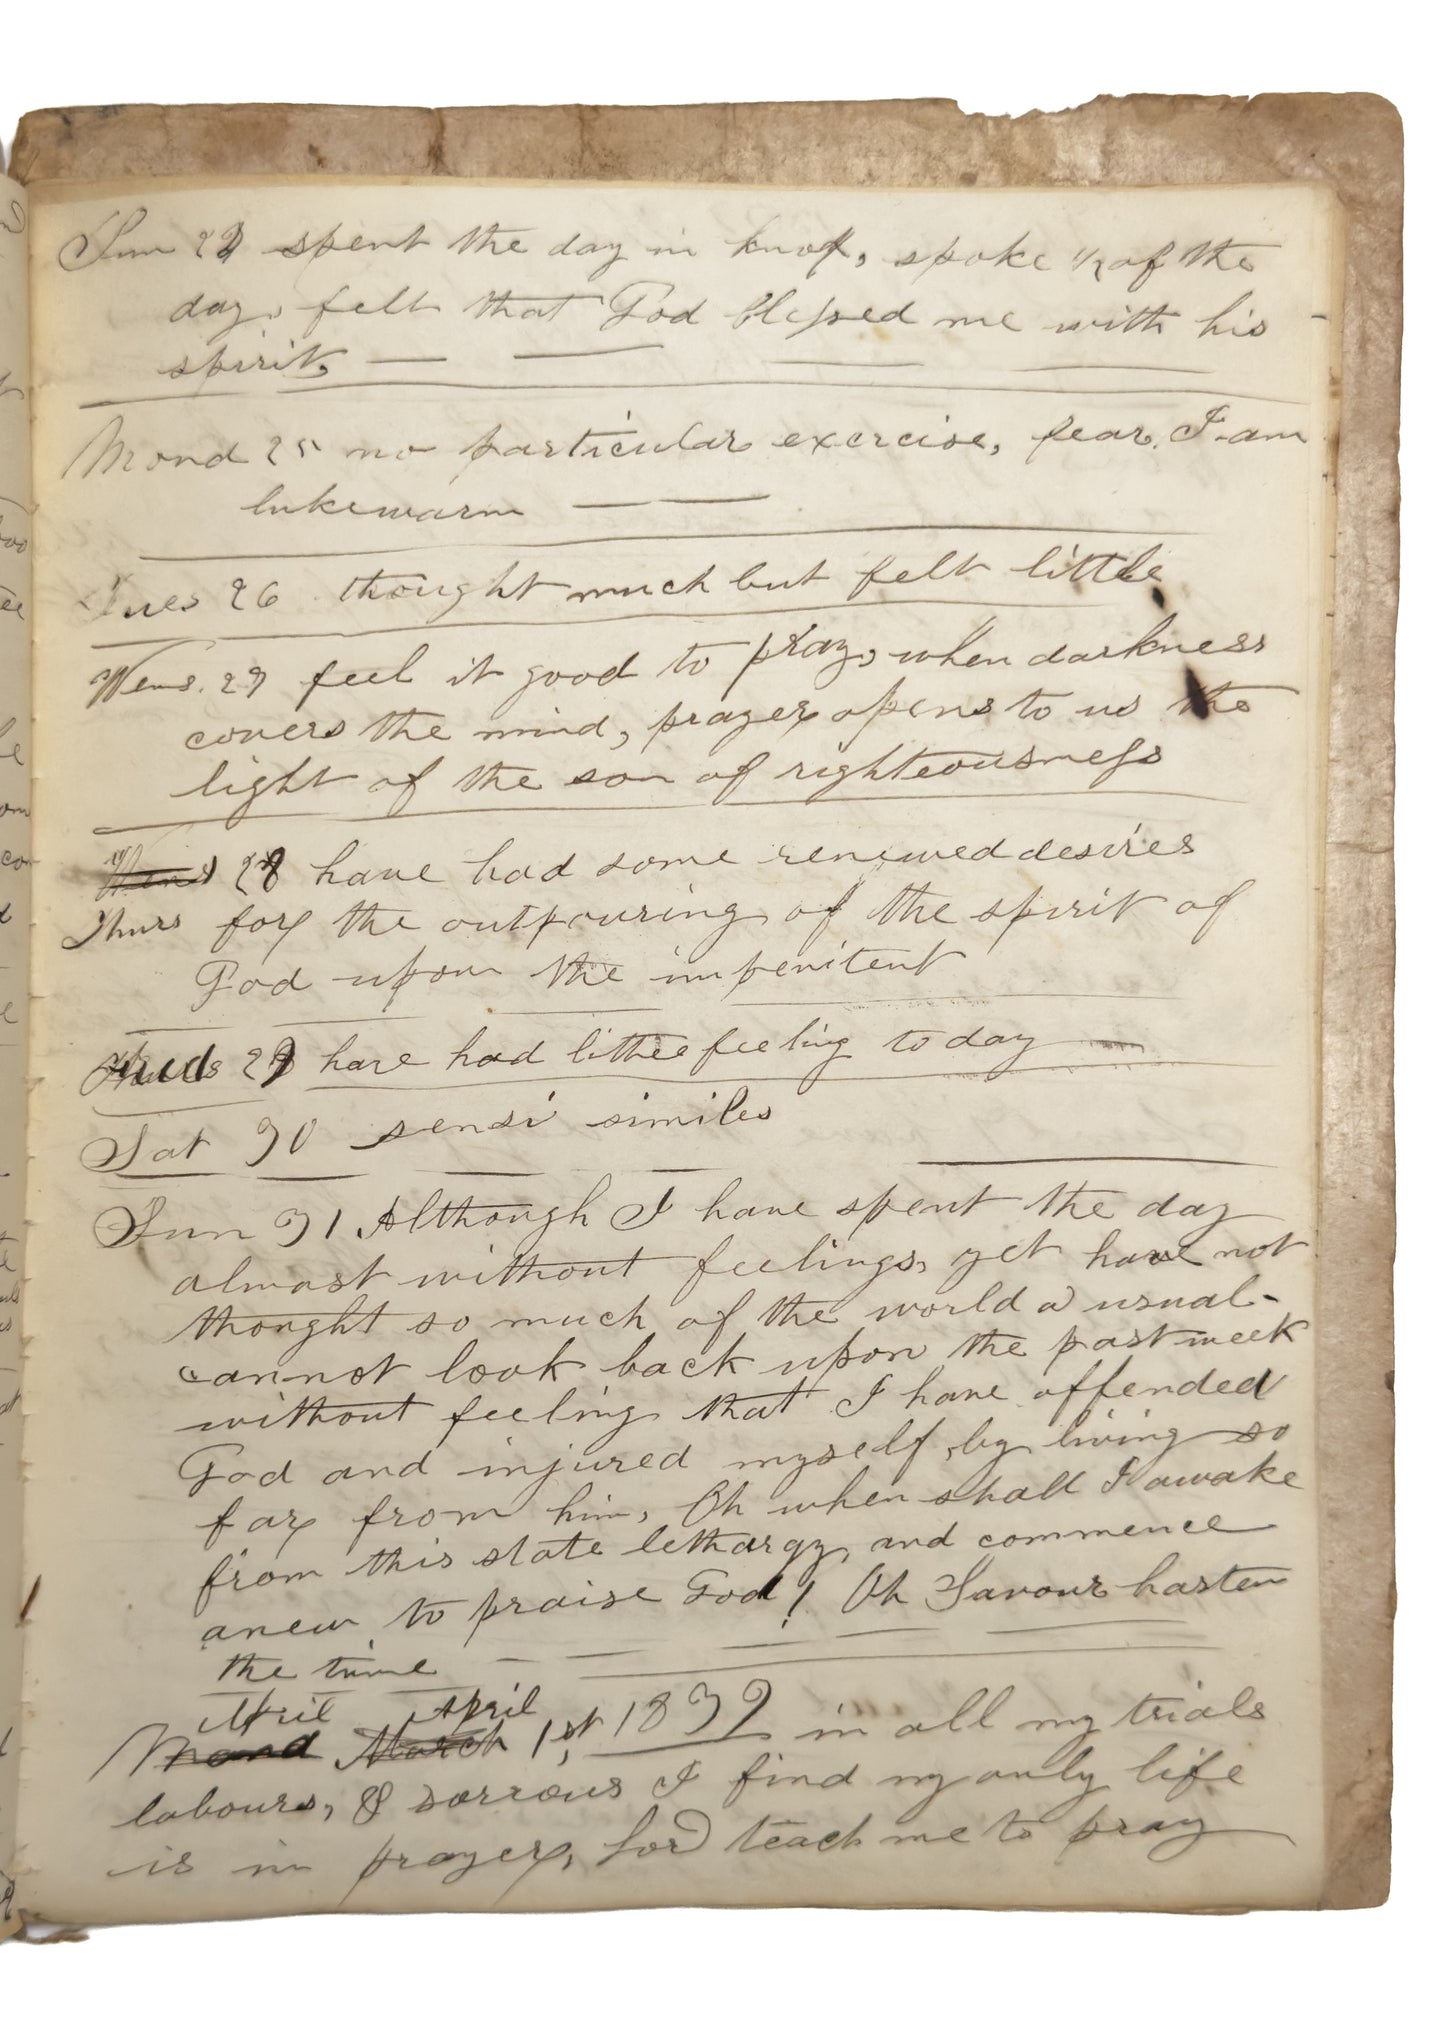 Sun 24 spent the day in Knox, spoke 1/2 of the
day, felt that God blessed me with his
spirit,
Mond 25 no particular exercise, fear I am
lukewarm
Tues 26 thought much but felt little
Wens. 27 feel it good to pray, when darkness
covers the mind, prayer opens to us the
light of the son of righteousness
Wens 28 have had some renewed desires
Thurs for the outpouring of the spirit of
God upon the impenitent
29 have had little feeling to day
Sat 30 sensi similes
Sun 31 Although I have spent the day
almost without feelings, yet have not
thought so much of the world a usual-
cannot look back upon the past week
without feeling that I have offended
God and injured myself, by living so
far from him, Oh when shall I awake
from this state lethargy, and commence
anew to praise God! Oh Savour hasten
the time
April April
Mond March 1st, 1839 in all my trials
labours, & sorrows I find my only life
is in prayer, Lord teach me to pray